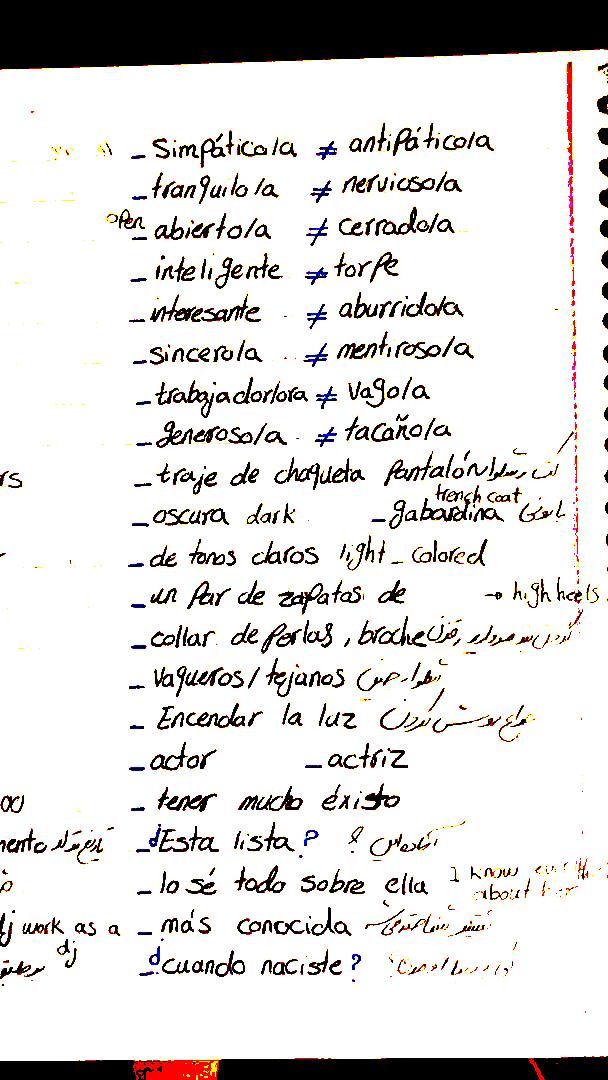 - Simpático/a ≠ antipático/a
- tranquilo/a ≠ nervioso/a
open - abierto/a ≠ cerrado/a
- inteligente ≠ torpe
- interesante ≠ aburrido/a
- sincero/a ≠ mentiroso/a
- trabajador/ora ≠ vago/a
- generoso/a ≠ tacaño/a
rs
- traje de chaqueta pantalón
trench coat
- oscura dark - gabardina بارونی
- de tonos claros light - colored
- un par de zapatos de → high heels
- collar de perlas, broche
- Vaqueros / tejanos شلوار جین
- Encendar la luz چراغ روشن کردن
- actor - actriz
- tener mucho éxisto
mento تاریخ تولد
- ¿Esta lista? آماده‌اس؟
- lo sé todo sobre ella I know everything
about her
j work as a
dj
- más conocida
- ¿cuando naciste?